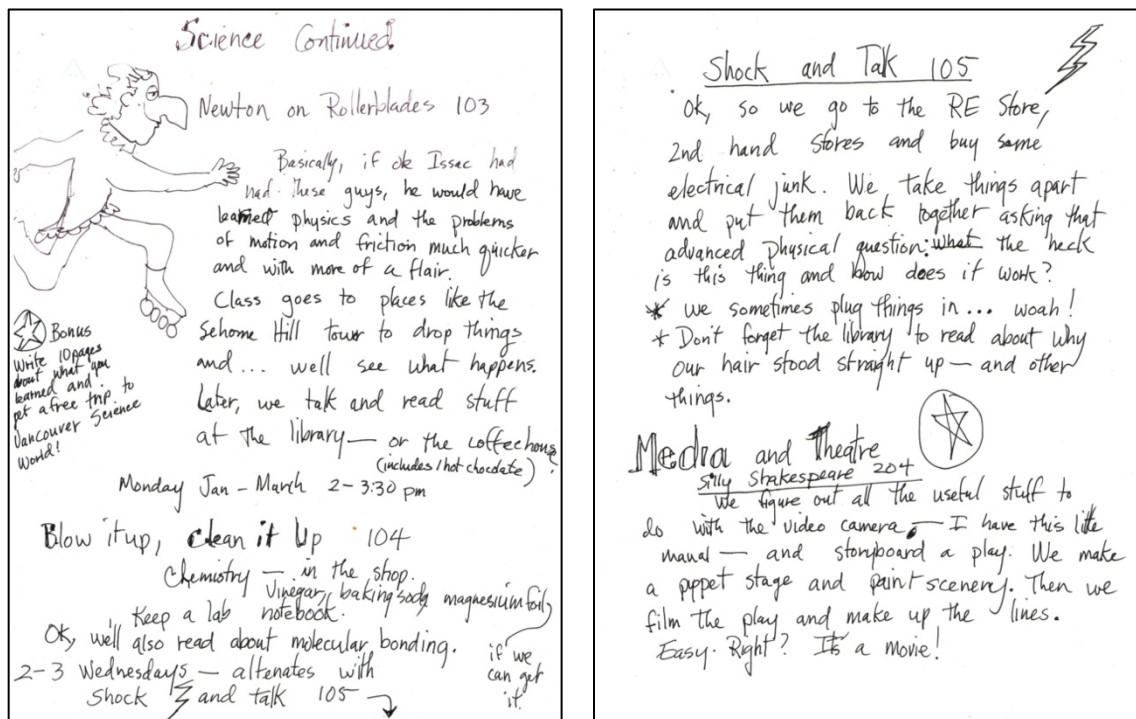 Science Continued
Newton on Rollerblades 103
Basically, if ole Issac had
had these guys, he would have
learned physics and the problems
of motion and friction much quicker
and with more of a flair.
Class goes to places like the
Sehome Hill tower to drop things
and... well see what happens.
Later, we talk and read stuff
at the library — or the coffeehouse.
(includes 1 hot chocolate)
Monday Jan - March 2-3:30 pm
Bonus
Write 10 pages
about what you
learned and
get a free trip to
Vancouver Science
World!
Blow it up, clean it Up 104
Chemistry — in the shop.
Vinegar, baking soda, magnesium foil,
if we
can get
it.
Keep a lab notebook.
Ok, we'll also read about molecular bonding.
2-3 Wednesdays — altenates with
Shock and talk 105
Shock and Talk 105
Ok, so we go to the RE Store,
2nd hand stores and buy some
electrical junk. We take things apart
and put them back together asking that
advanced physical question: what the heck
is this thing and how does it work?
* we sometimes plug things in... woah!
* Don't forget the library to read about why
our hair stood straight up — and other
things.
Media and Theatre
Silly Shakespeare 204
We figure out all the useful stuff to
do with the video camera — I have this little
manual — and storyboard a play. We make
a puppet stage and paint scenery. Then we
film the play and make up the lines.
Easy. Right? It's a movie!